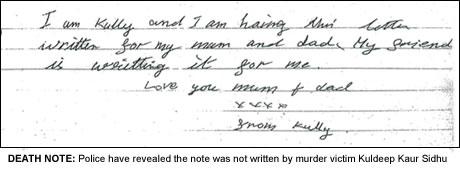 I am Kully and I am haing this letter
written for my mum and dad. My friend
is weritting it for me
Love you mum & dad
xxxx
from Kully.
DEATH NOTE: Police have revealed the note was not written by murder victim Kuldeep Kaur Sidhu